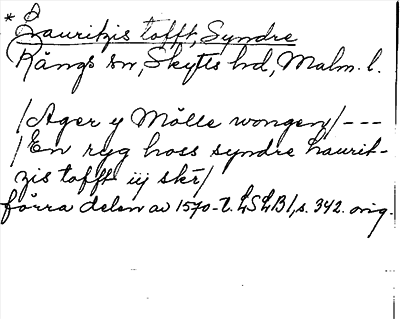 * Lauritzis tofft, Syndre
Rängs sn, Skytts hd, Malm. l.
/Ager y Mölle wongen/ ---
/En ryg hoss syndre haurit-
zis tofft iij skr/
förra delen av 1570-t. LSLB 1, s. 342. orig.